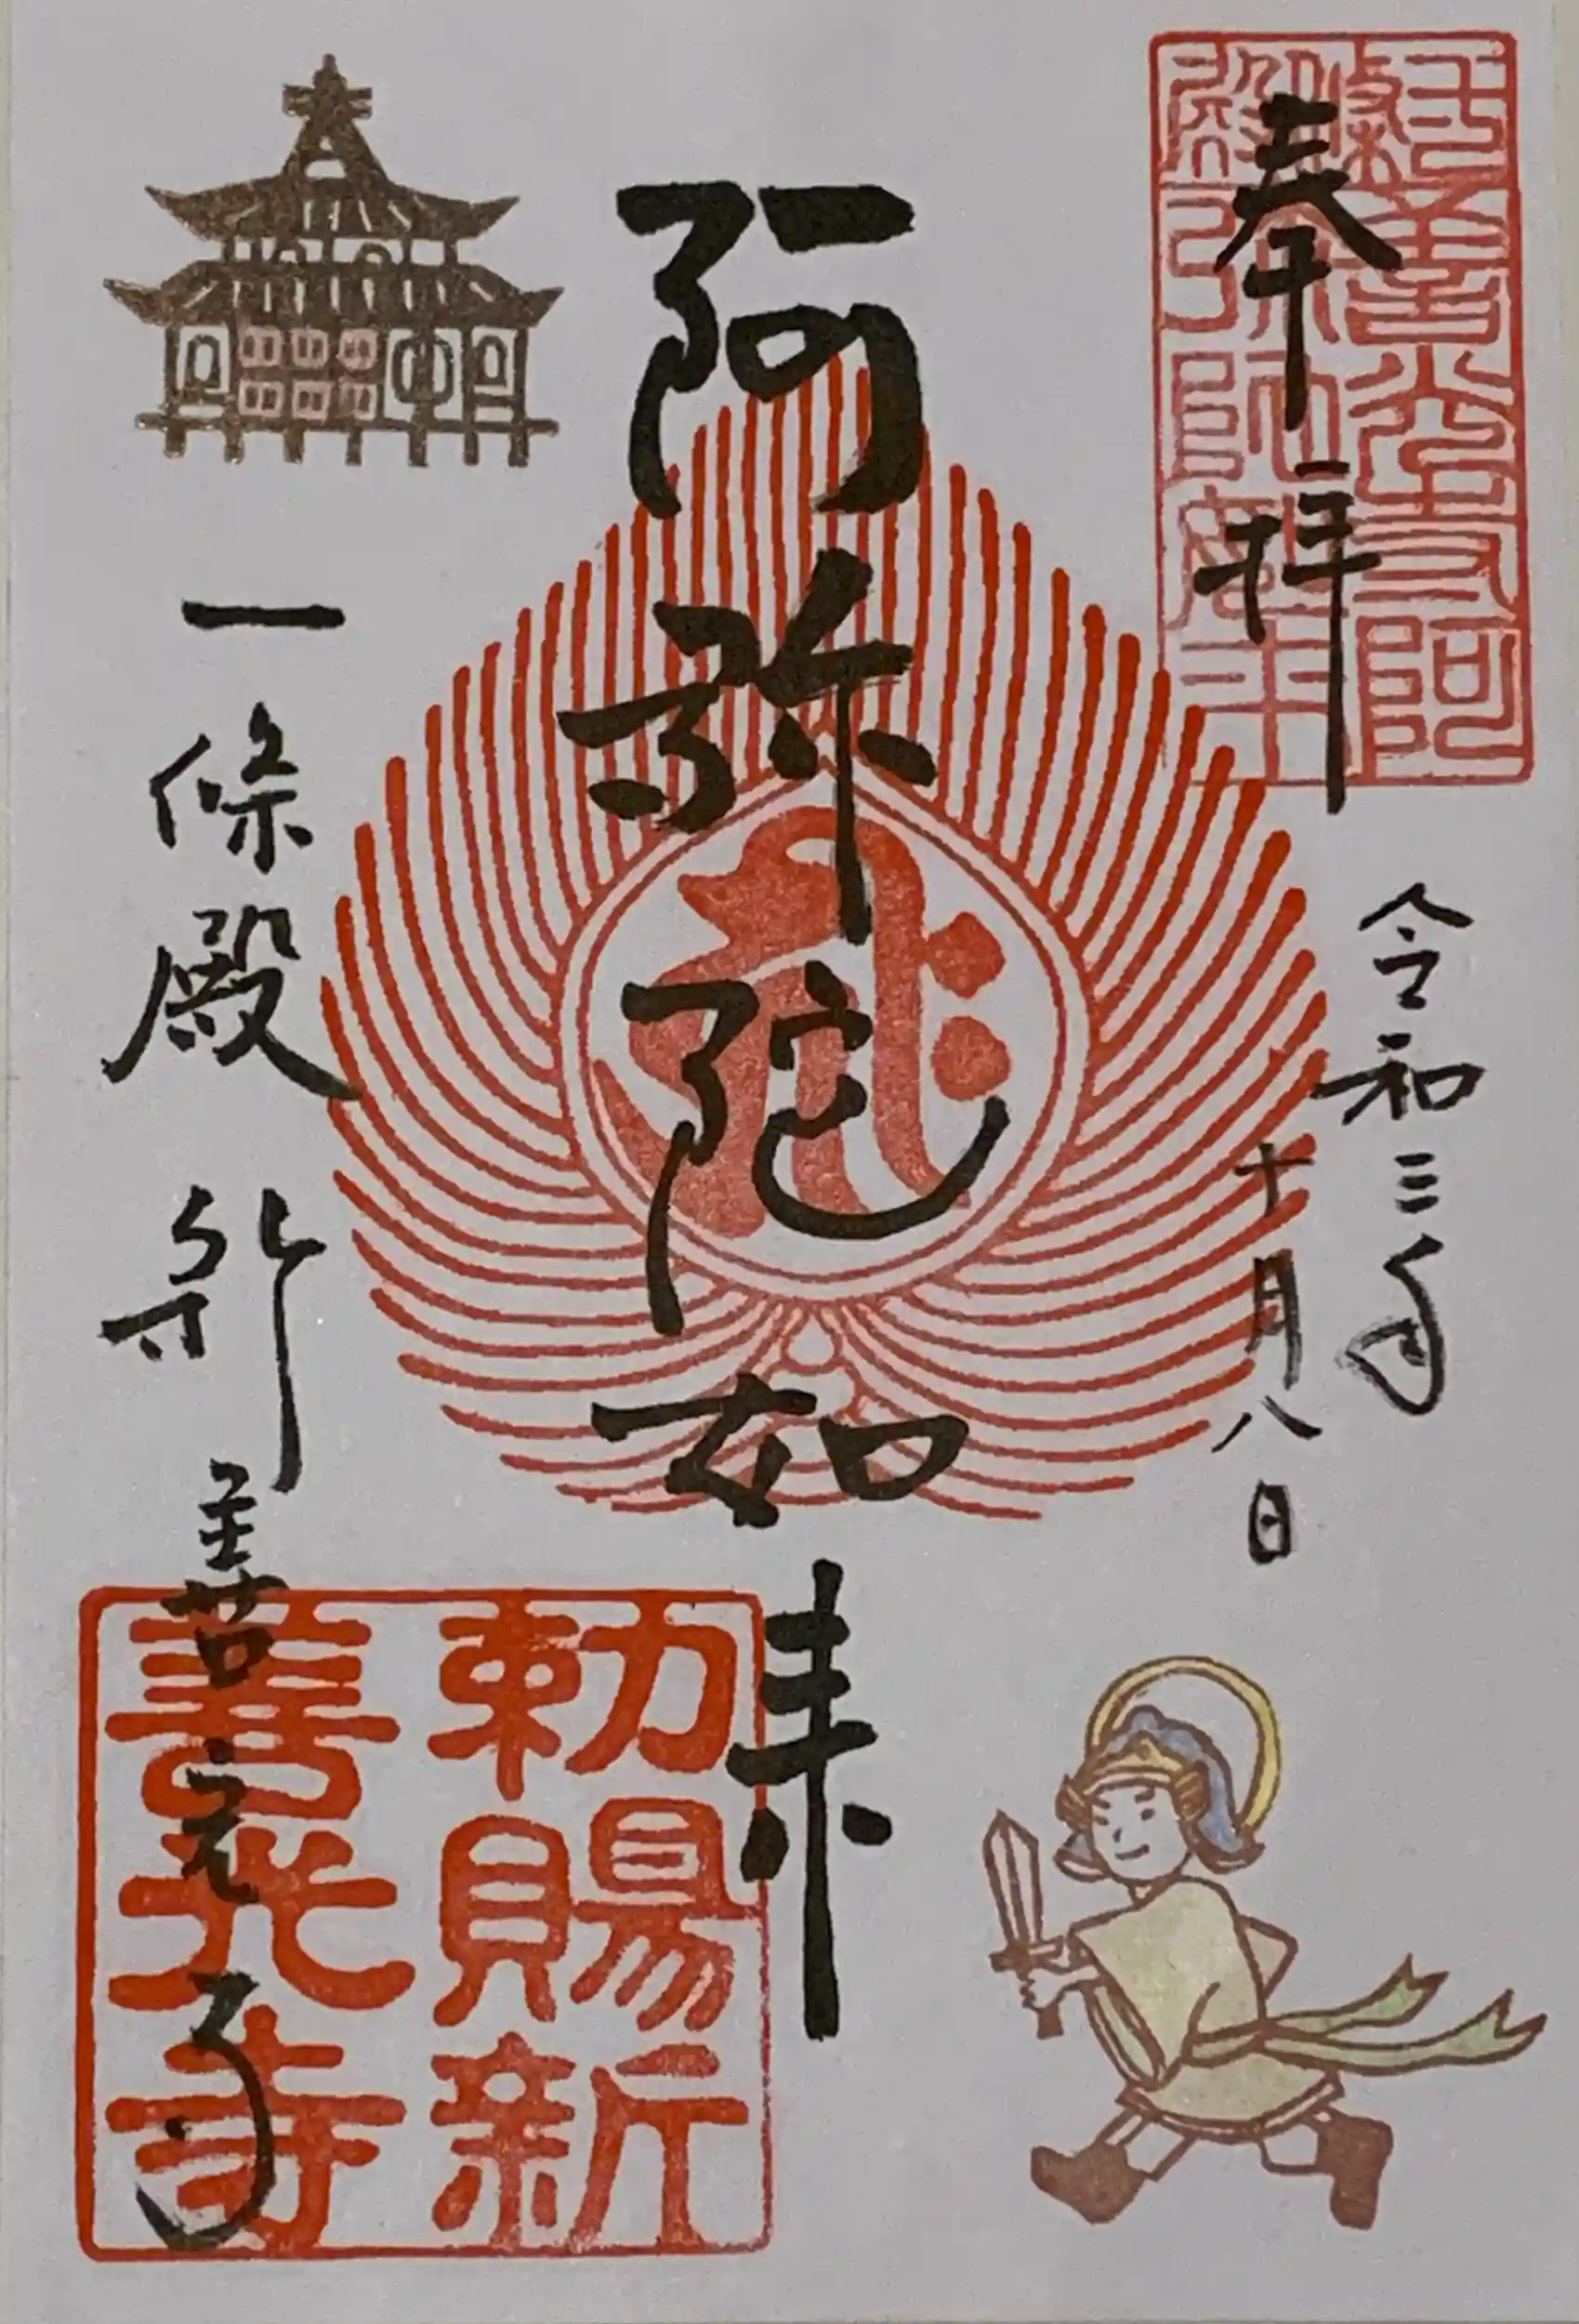 奉拝
令和三年
十月八日
阿弥陀如来
一條殿新善光寺
勅賜新
善光寺